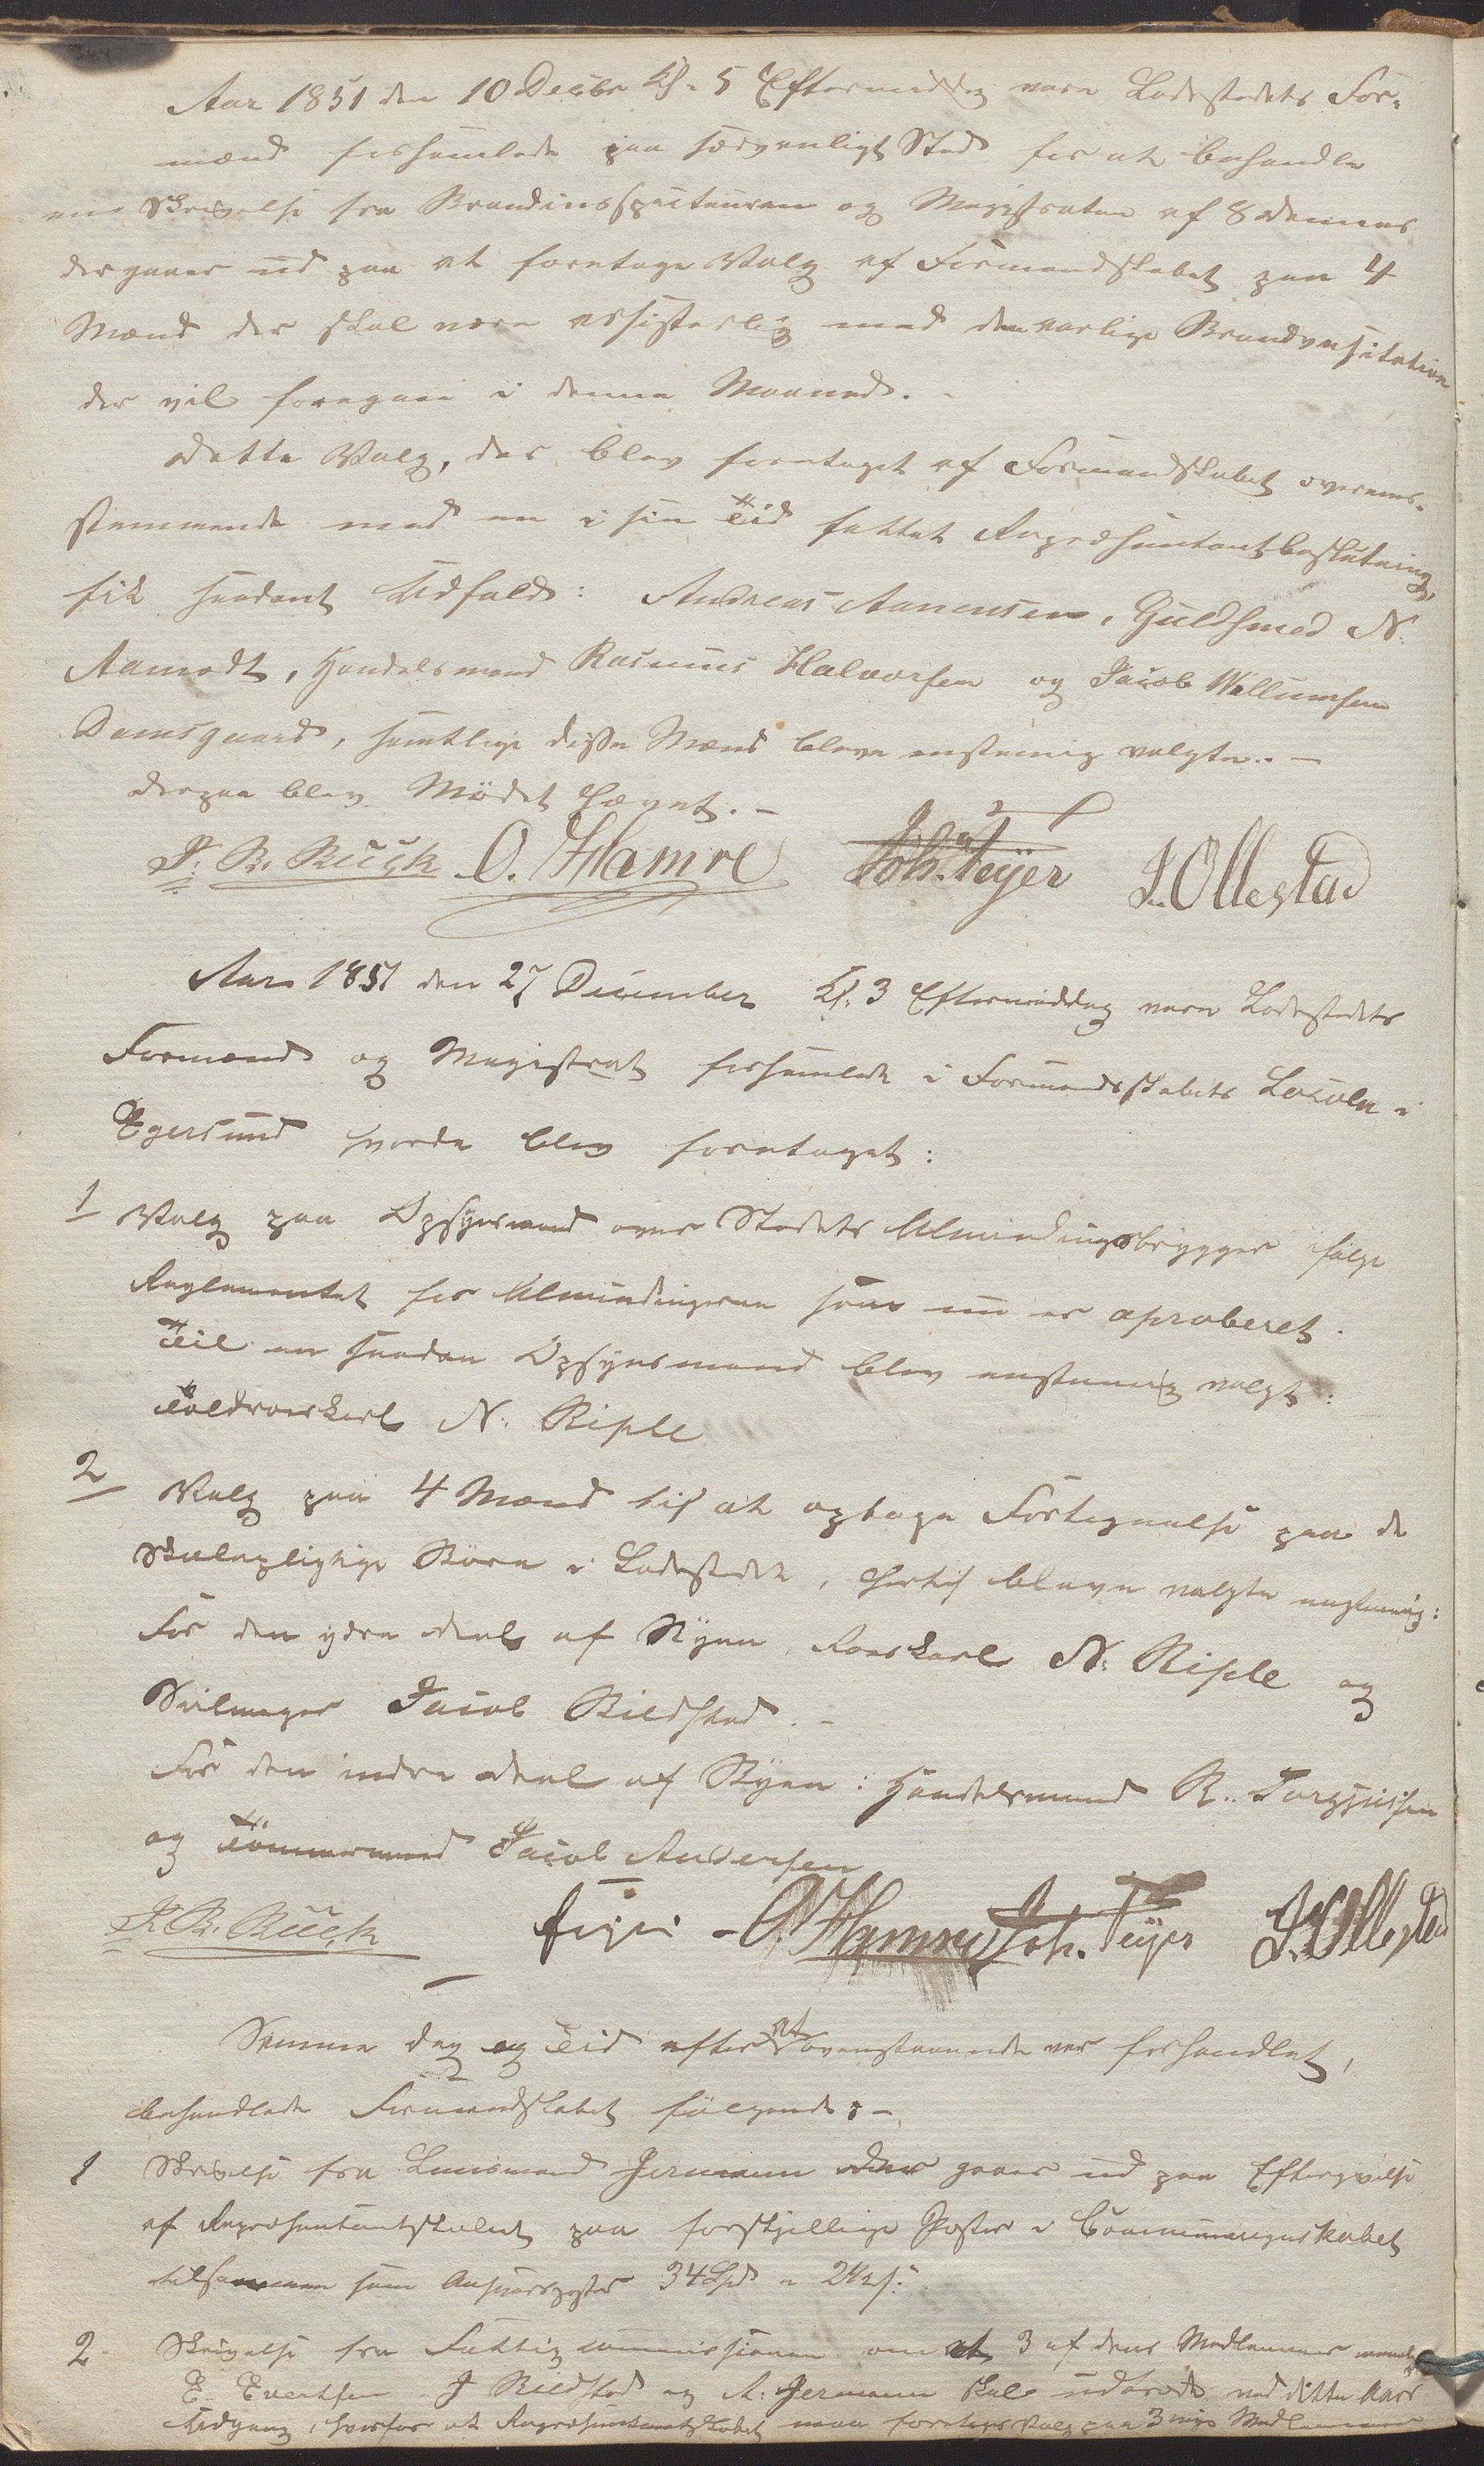 Aar 1851 den 10 Decbr Kl. 5 Eftermiddag vare Ladestedets For-
mænd forsamlede paa sædvanligt Sted for at behandle
en Skrivelse fra Brandinsspecteuren og Magistraten af 8 dennes
der gaaer ud paa at foretage Valg af Formandskabet paa 4
Mænd der skal være assisterlig med den aarlige Brandvesitation
der vil foregaae i denne Maaned. -
Dette Valg, der blev foretaget af Formandskabet overens-
stemmende med en i sin Tid fattet Repræsentantbeslutning,
fik saadant Udfald: Andreas Aanensen, Guldsmed N.
Aamodt, Handelsmand Rasmus Halvorsen og Jacob Willumsen
Damsgaard, samtlige disse Mænd bleve enstemig valgte. -
Derpaa blev Mödet hævet. -
J. B. Buch O. Hamre Joh. Feyer J. Ollestad
Aar 1851 den 27 December Kl. 3 Eftermiddag vare Ladestedets
Formænd og Magistrat forsamlede i Formandsskabets Locale i
Egersund hvorda blev foretaget:
1 Valg paa Opsynsmand over Stedets Almindingsbrygger ifölge
Reglementet for Almindingerne som nu er aproberet.
Til en saadan Opsynsmand blev enstemig valgt:
Toldroerskarl N. Risple
2 Valg paa 4 Mænd til at optage Fortegnelse paa de
Skolepligtige Börn i Ladestedet, hertil bleve valgte enstemig:
For den ydre Deel af Byen, Roerskarl N. Risple og
Seilmager Jacob Bildstad. -
For den indre Deel af Byen: Handelsmand R. Torgjussen
og Tömmermand Jacob Andersen
J. B. Buch Feyer - O. Hamre Joh. Feyer J. Ollestad
Samme Dag og Tid efter at ovenstaaende var forhandlet,
behandlede Formandskabet fölgende: -
1 Skrivelse fra Lensmand Jermann der gaaer ud paa Eftergivelse
af Repræsentantskabet paa forskjellige Poster i Communeregnskabet
tilsammen som Ansvarsposter 34 Spd 2
2 Skrivelse fra Fattigcommissionen om at 3 af dens Medlemmer nemlig
E. Evertsen J Bildstad og A. Jermann skal udtræde ved dette Aars
Udgang, hvorfor at Repræsentantskabet maa foretage Valg paa 3 nye Medlemmer